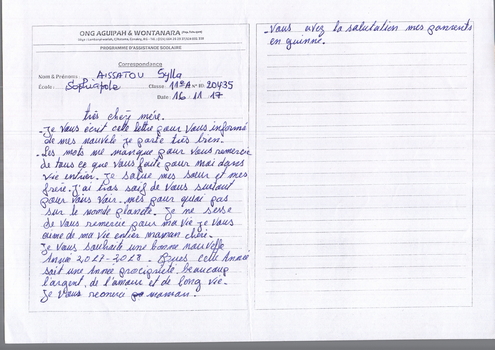 ONG AGUIPAH & WONTANARA
PROGRAMME D'ASSISTANCE SCOLAIRE
Correspondance
Nom & Prénoms : AISSATOU Sylla
École : Sophiapole Classe 11èA N° ID 20435
Date 16 11 17
très chère mère.
- Je vous écrit cette lettre pour vous informé
de mes nouvele je porte très bien.
- Les mots me manque pour vous remercie
de tous ce que vous faite pour moi dans
vie entrier. Je salue mes sœur et mes
frère. J'ai tras soif de vous surtout
pour vous voir. mes pour quoi pas
sur le monde planète. Je me sesse
de vous remercie pour ma vie je vous
aime de ma vie entier maman chérie.
Je vous souhaite une bonne nouvelle
Année 2017-2018. cette Année
soit une Année beaucoup
l'argent, de l'amour et de long vie.
Je vous remercie maman.
- Vous avez la salutation mes parrents
en guinné.